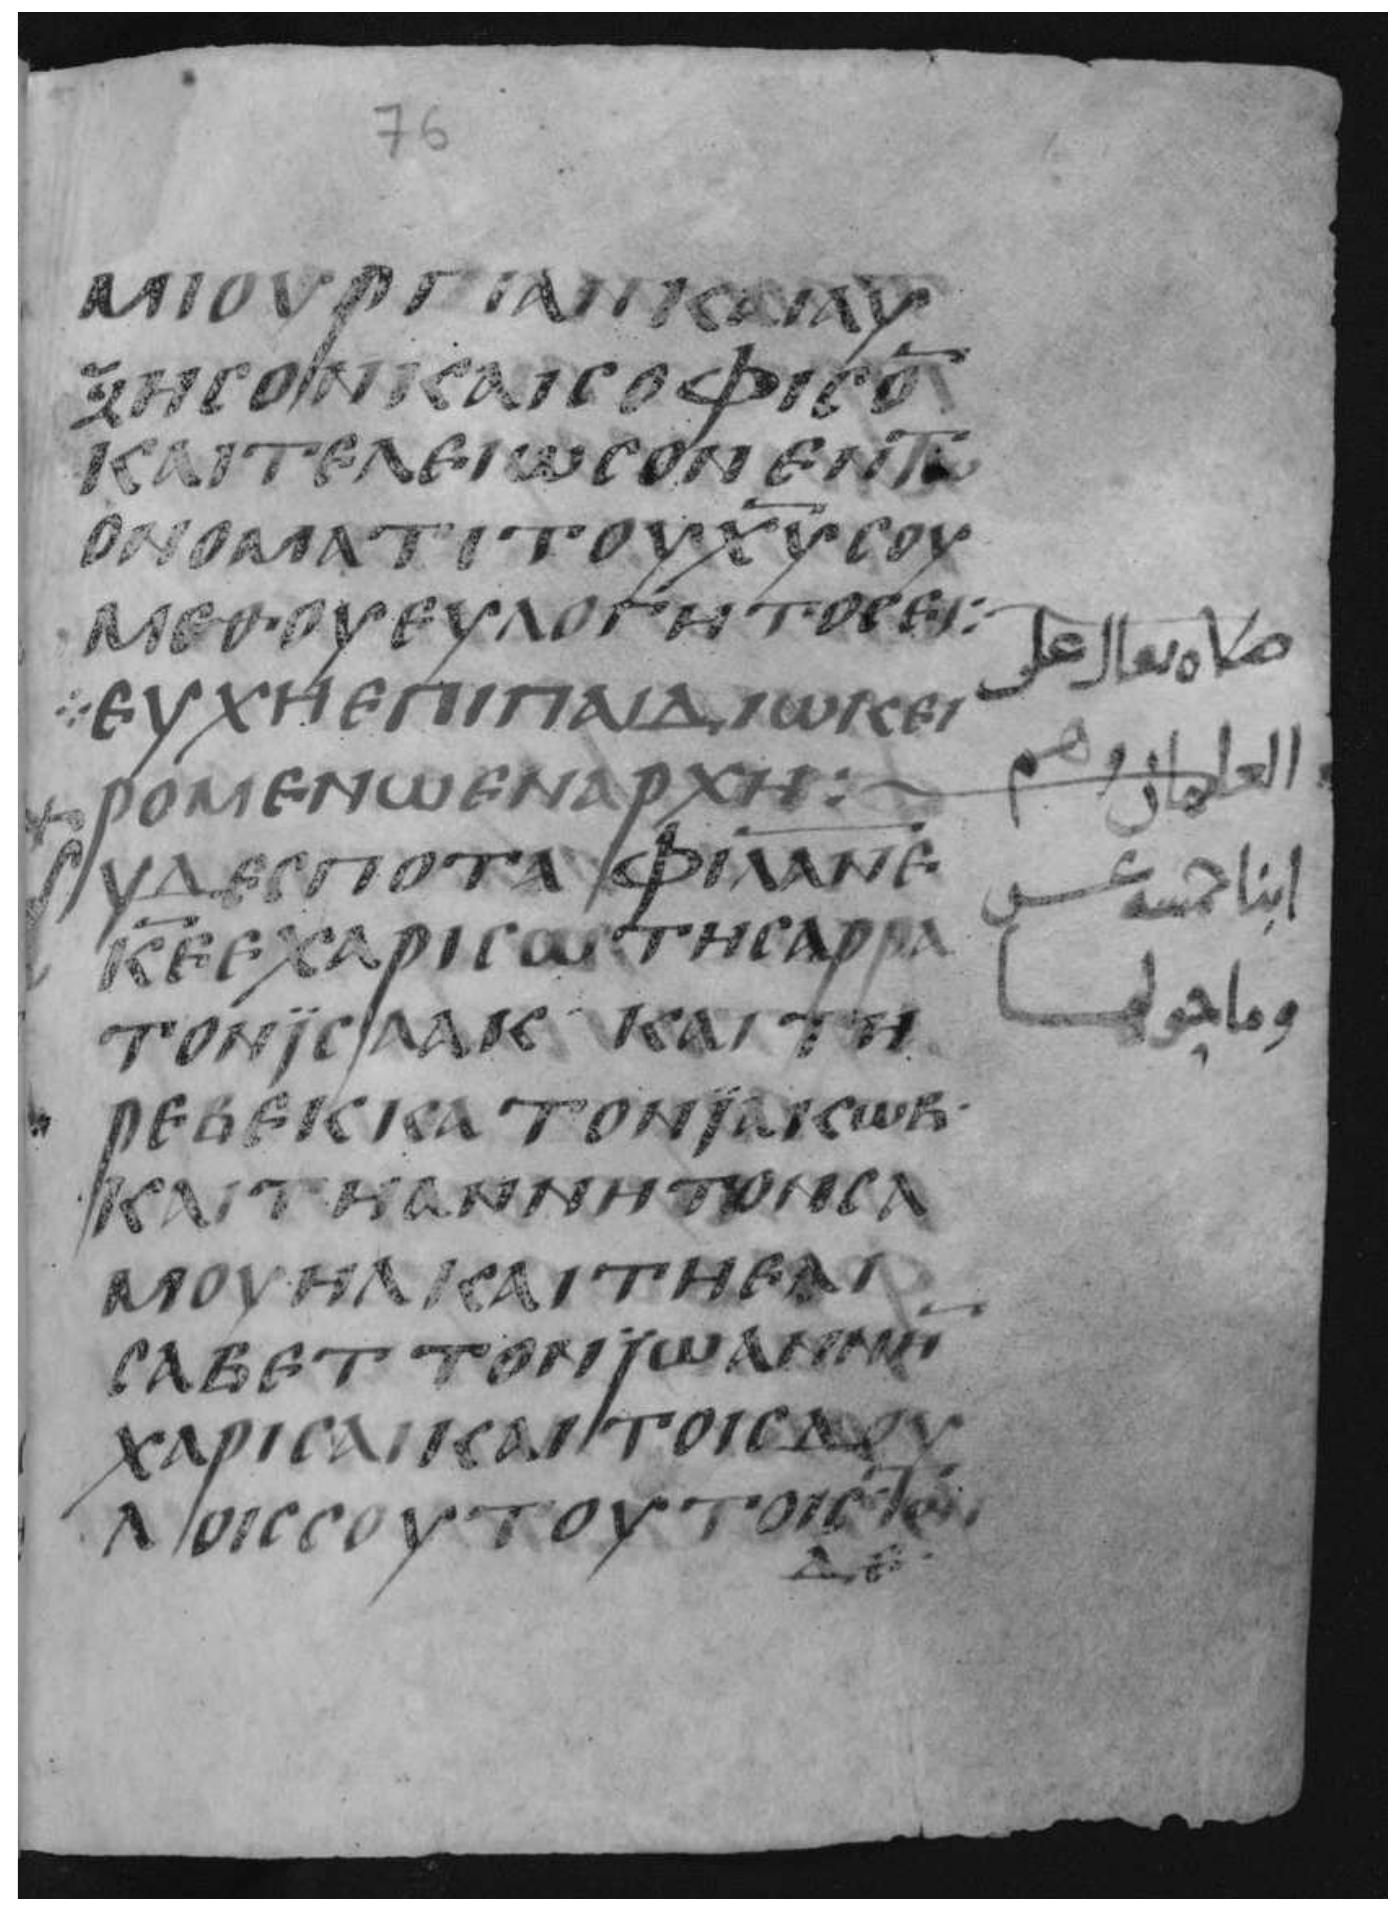 76
ΜΙΟΥΡΓΙΑΝ ΚΑΙ ΑΥ
ΞΗСΟΝ ΚΑΙ СΟΦΙСΟ̅
ΚΑΙ ΤΕΛΕΙωСΟΝ ΕΝ Τω
ΟΝΟΜΑΤΙ ΤΟΥ Χ̅Υ̅ СΟΥ
ΜΕΘ ΟΥ ΕΥΛΟΓΗΤΟС ΕΙ:
ΕΥΧΗ ΕΠΙ ΠΑΙΔΙω ΚΕΙ
ΡΟΜΕΝω ΕΝ ΑΡΧΗ:
СΥ ΔΕСΠΟΤΑ Φ̅Ι̅Λ̅Α̅Ν̅Ε̅
Κ̅Ε̅ Ε ΧΑΡΙСω ΤΗ СΑΡΡΑ
ΤΟΝ ΪСΑΑΚ ΚΑΙ ΤΗ
ΡΕΒΕΚΚΑ ΤΟΝ ΪΑΚωΒ·
ΚΑΙ ΤΗ ΑΝΝΗ ΤΟΝ СΑ
ΜΟΥΗΛ ΚΑΙ ΤΗ ΕΛΙ
СΑΒΕΤ ΤΟΝ ΪωΑΝΝΗ̅
ΧΑΡΙСΑΙ ΚΑΙ ΤΟΙС ΔΟΥ
ΛΟΙС СΟΥ ΤΟΥΤΟΙС
ΔΕ
صلاه تقال على
الغلمان وهم
ابنا خمسه عشر
وما حولها